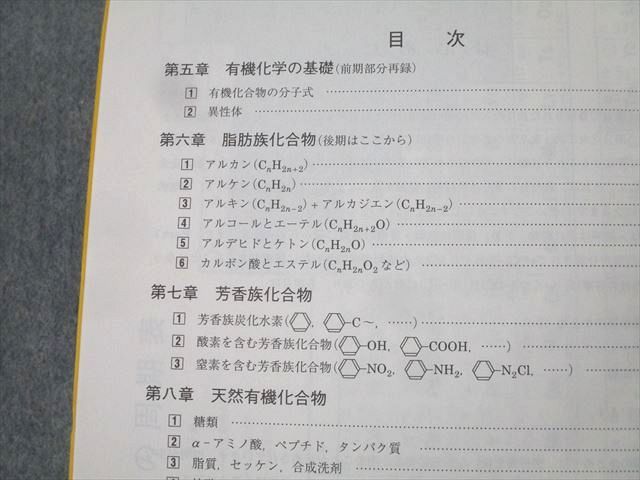 目 次
第五章 有機化学の基礎(前期部分再録)
1 有機化合物の分子式 ……
2 異性体 ……
第六章 脂肪族化合物(後期はここから)
1 アルカン(CnH2n+2) ……
2 アルケン(CnH2n) ……
3 アルキン(CnH2n−2)+アルカジエン(CnH2n−2) ……
4 アルコールとエーテル(CnH2n+2O) ……
5 アルデヒドとケトン(CnH2nO) ……
6 カルボン酸とエステル(CnH2nO2など) ……
第七章 芳香族化合物
1 芳香族炭化水素( , -C〜, ……) ……
2 酸素を含む芳香族化合物( -OH, -COOH, ……) ……
3 窒素を含む芳香族化合物( -NO2, -NH2, -N2Cl, ……) ……
第八章 天然有機化合物
1 糖類 ……
2 α-アミノ酸, ペプチド, タンパク質 ……
3 脂質, セッケン, 合成洗剤 ……